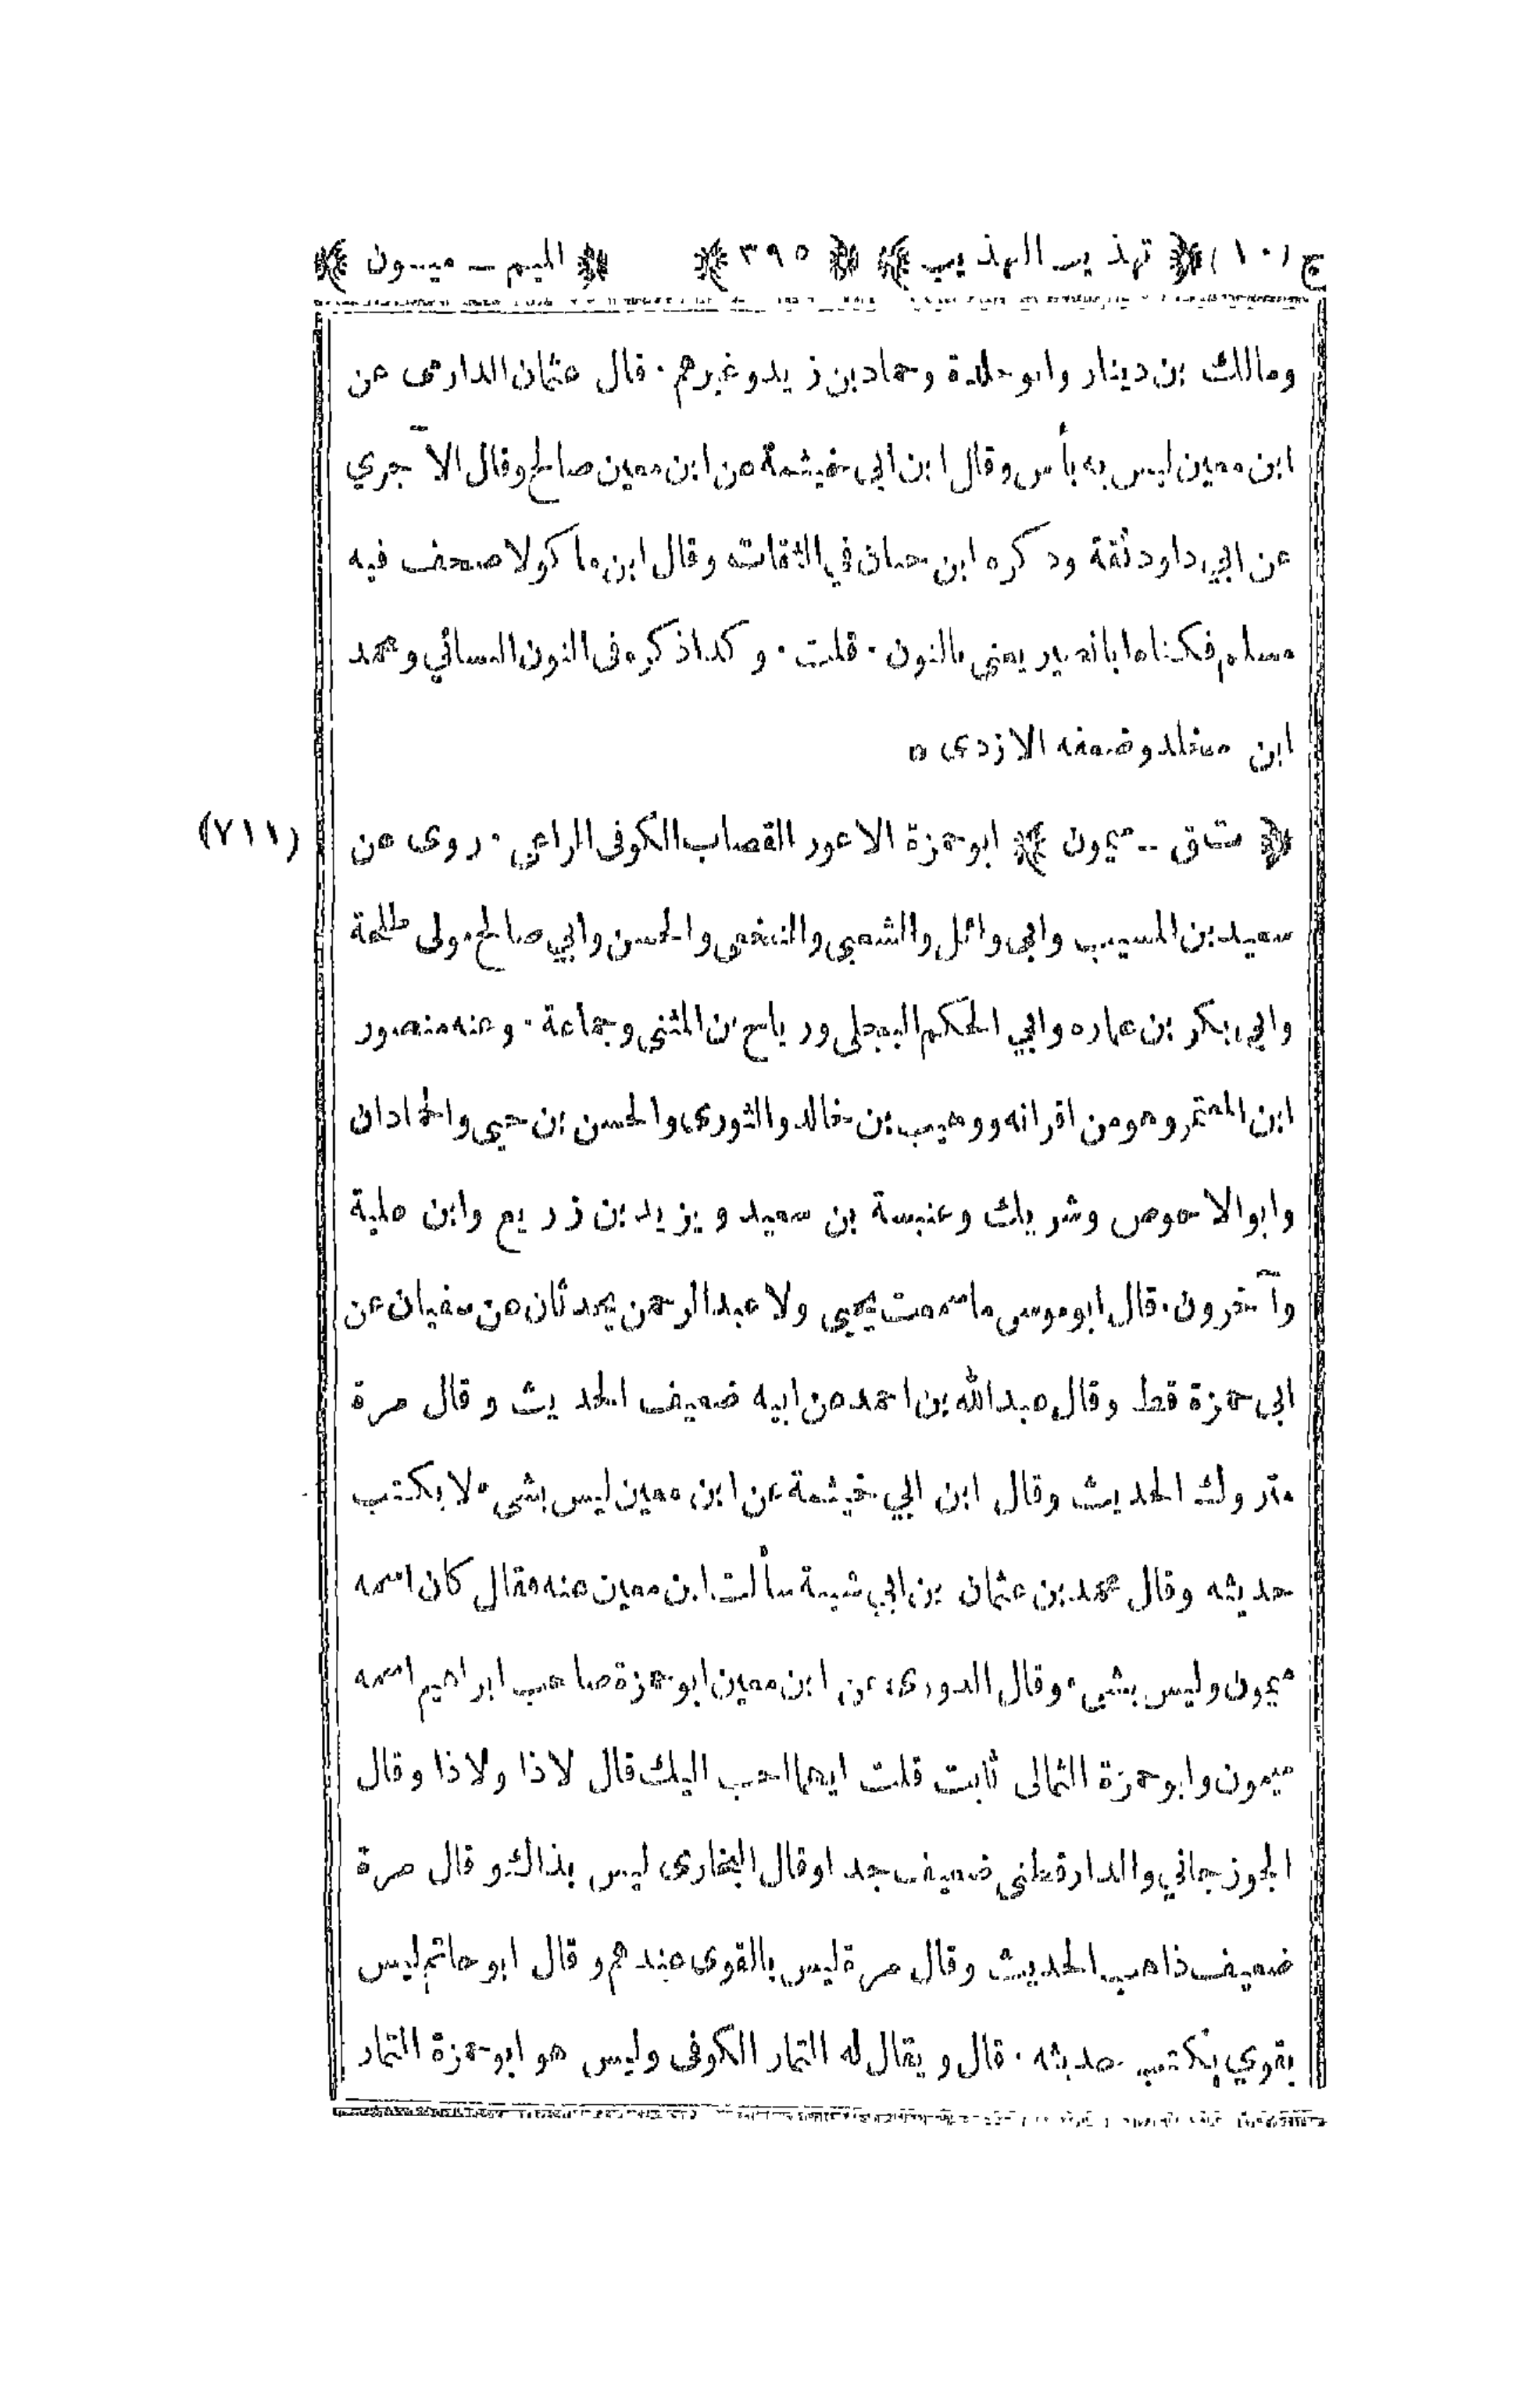 ج (١٠) ﴿ تهذيب التهذيب ﴾ ﴿ ٣٩٥ ﴾ ﴿ الميم ــ ميمون ﴾
ومالك بن دينار وابو خلدة وحماد بن زيد وغيرهم ٠ قال عثمان الدارمى عن
ابن معين ليس به بأس وقال ابن ابى خيثمة عن ابن معين صالح وقال الآجري
عن ابي داود ثقة وذكره ابن حبان في الثقات وقال ابن ماكولا صحف فيه
مسلم فكناه ابا نصير يعنى بالنون ٠ قلت ٠ وكذا ذكره فى النون النسائي ومحمد
ابن مخلد وضعفه الازدى ٥
﴿ ت ق ــ ميمون ﴾ ابو حمزة الاعور القصاب الكوفى الراعي ٠ روى عن
(٧١١)
سعيد بن المسيب وابى وائل والشعبي والنخعي والحسن وابي صالح مولى طلحة
وابي بكر بن عماره وابي الحكم البجلى ورياح بن المثنى وجماعة ٠ وعنه منصور
ابن المعتمر وهو من اقرانه ووهيب بن خالد والثورى والحسن بن حيى والحمادان
وابو الاحوص وشريك وعنبسة بن سعيد ويزيد بن زريع وابن علية
وآخرون ٠ قال ابو موسى ما سمعت يحيى ولا عبد الرحمن يحدثان عن سفيان عن
ابى حمزة قط وقال عبد الله بن احمد عن ابيه ضعيف الحديث وقال مرة
متروك الحديث وقال ابن ابي خيثمة عن ابن معين ليس بشىء لا يكتب
حديثه وقال محمد بن عثمان بن ابي شيبة سألت ابن معين عنه فقال كان اسمه
ميمون وليس بشىء وقال الدورى عن ابن معين ابو حمزة صاحب ابراهيم اسمه
ميمون وابو حمزة الثمالى ثابت قلت ايهما احب اليك قال لا ذا ولا ذا وقال
الجوزجاني والدارقطنى ضعيف جدا وقال البخارى ليس بذاك وقال مرة
ضعيف ذاهب الحديث وقال مرة ليس بالقوى عندهم وقال ابو حاتم ليس
بقوي يكتب حديثه ٠ قال ويقال له التمار الكوفى وليس هو ابو حمزة التمار